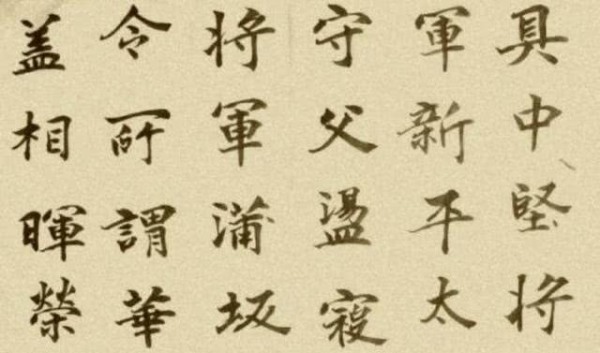 具中堅將
軍新平太
守父盪寇
將軍蒲坂
令所謂華
蓋相暉榮